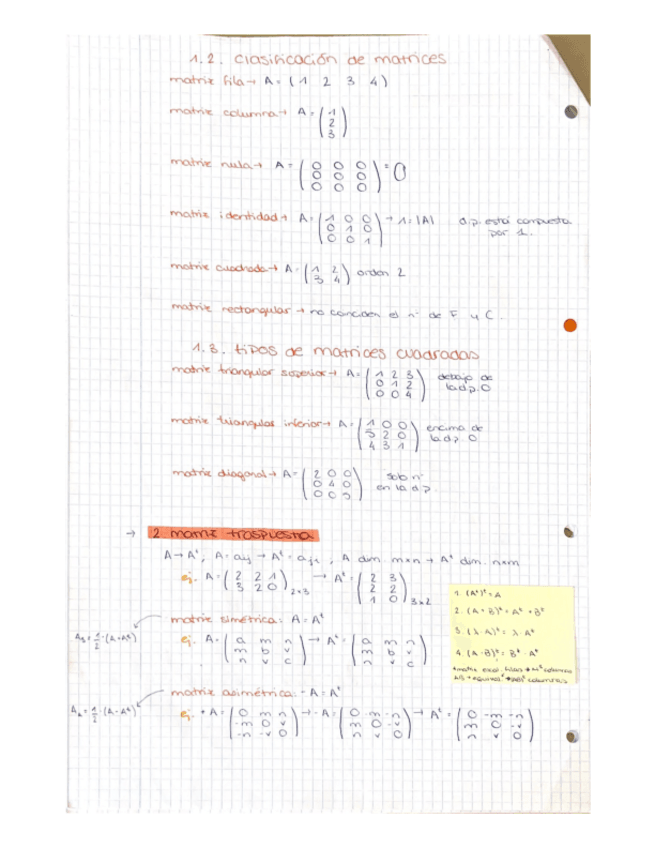 1.2. clasificación de matrices
matriz fila → A = ( 1 2 3 4 )
matriz columna → A = ( 1
2
3 )
matriz nula → A = ( 0 0 0
0 0 0
0 0 0 ) = 0
matriz identidad → A = ( 1 0 0
0 1 0
0 0 1 ) → 1 = |A| d.p. está compuesta
por 1.
matriz cuadrada → A = ( 1 2
3 4 ) orden 2
matriz rectangular → no coinciden el nº de F y C.
1.3. tipos de matrices cuadradas
matriz triangular superior → A = ( 1 2 3
0 1 2
0 0 4 ) debajo de
la d.p. 0
matriz triangular inferior → A = ( 1 0 0
5 2 0
4 3 1 ) encima de
la d.p. 0
matriz diagonal → A = ( 2 0 0
0 4 0
0 0 3 ) solo nº
en la d.p.
→ 2. matriz traspuesta
A → Aᵗ, A = aij → Aᵗ = aji, A dim. m×n → Aᵗ dim. n×m
ej. A = ( 2 2 1
3 2 0 ) 2×3 → Aᵗ = ( 2 3
2 2
1 0 ) 3×2
1. (Aᵗ)ᵗ = A
2. (A + B)ᵗ = Aᵗ + Bᵗ
3. (λ·A)ᵗ = λ·Aᵗ
4. (A·B)ᵗ = Bᵗ·Aᵗ
matriz simétrica: A = Aᵗ
As = 1/2·(A+Aᵗ)
ej. A = ( a m n
m b v
n v c ) → Aᵗ = ( a m n
m b v
n v c )
matriz asimétrica: -A = Aᵗ
Aa = 1/2·(A-Aᵗ)
ej. + A = ( 0 m n
-m 0 v
-n -v 0 ) → -A = ( 0 -m -n
m 0 -v
n v 0 ) → Aᵗ = ( 0 -m -n
m 0 -v
n v 0 )